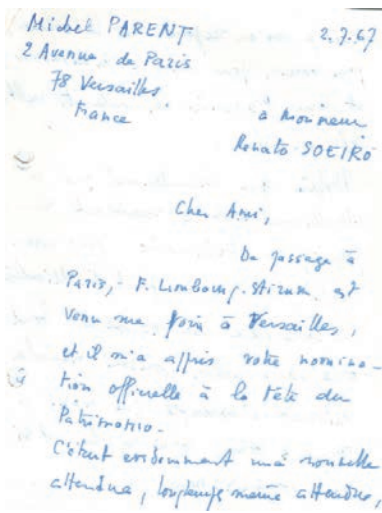 Michel PARENT 2.7.67
2 Avenue de Paris
78 Versailles
France
à Monsieur
Renato SOEIRO
Cher Ami,
De passage à
Paris, F. Limbourg-Stirum est
venu me voir à Versailles,
et il m'a appris votre nomina-
tion officielle à la tête du
Patrimonio.
C'était evidemment une nouvelle
attendue, longtemps même attendue,